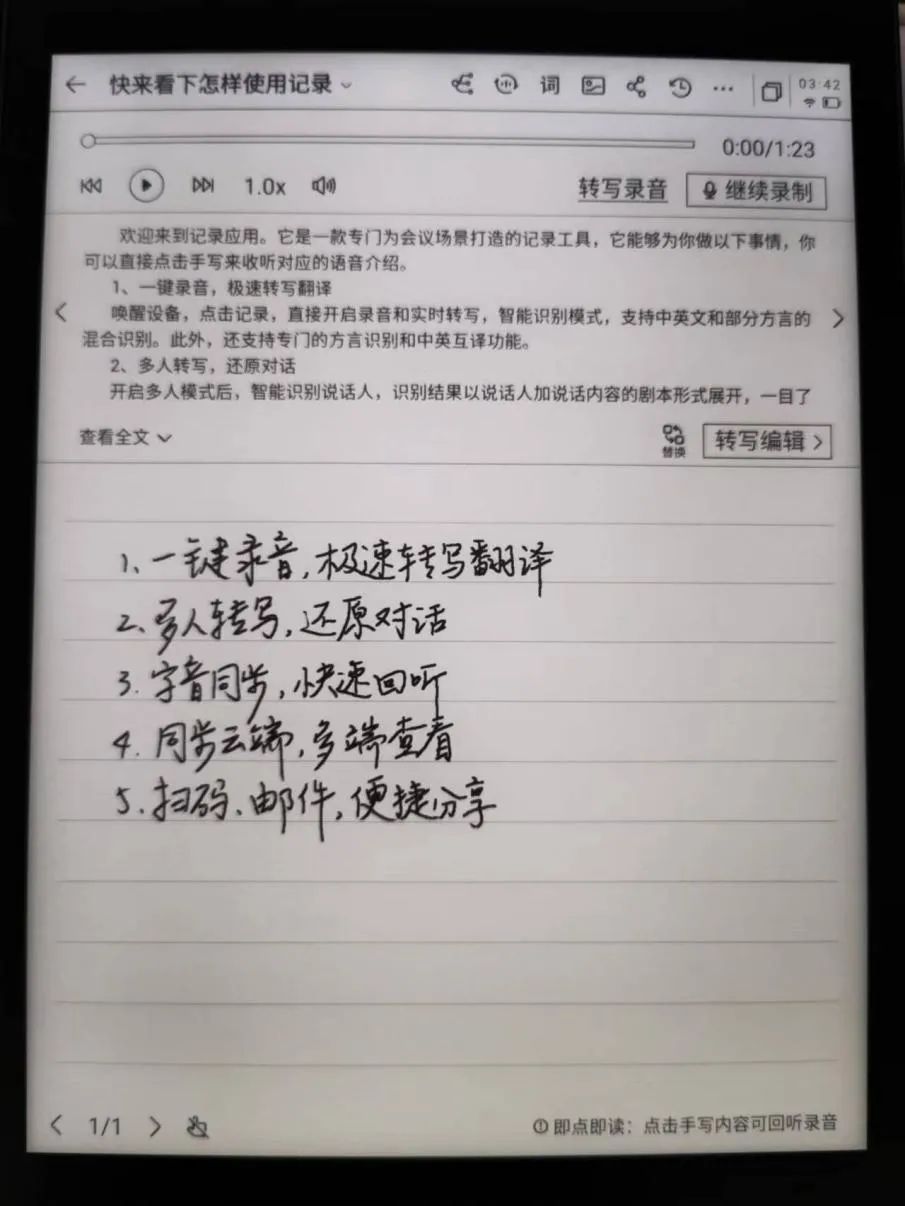 快来看下怎样使用记录
词
03:42
0:00/1:23
1.0x
转写录音
继续录制
欢迎来到记录应用。它是一款专门为会议场景打造的记录工具，它能够为你做以下事情，你
可以直接点击手写来收听对应的语音介绍。
1、一键录音，极速转写翻译
唤醒设备，点击记录，直接开启录音和实时转写，智能识别模式，支持中英文和部分方言的
混合识别。此外，还支持专门的方言识别和中英互译功能。
2、多人转写，还原对话
开启多人模式后，智能识别说话人，识别结果以说话人加说话内容的剧本形式展开，一目了
查看全文
替换
转写编辑
1、一键录音，极速转写翻译
2、多人转写，还原对话
3. 字音同步，快速回听
4. 同步云端，多端查看
5. 扫码、邮件，便捷分享
1/1
即点即读：点击手写内容可回听录音